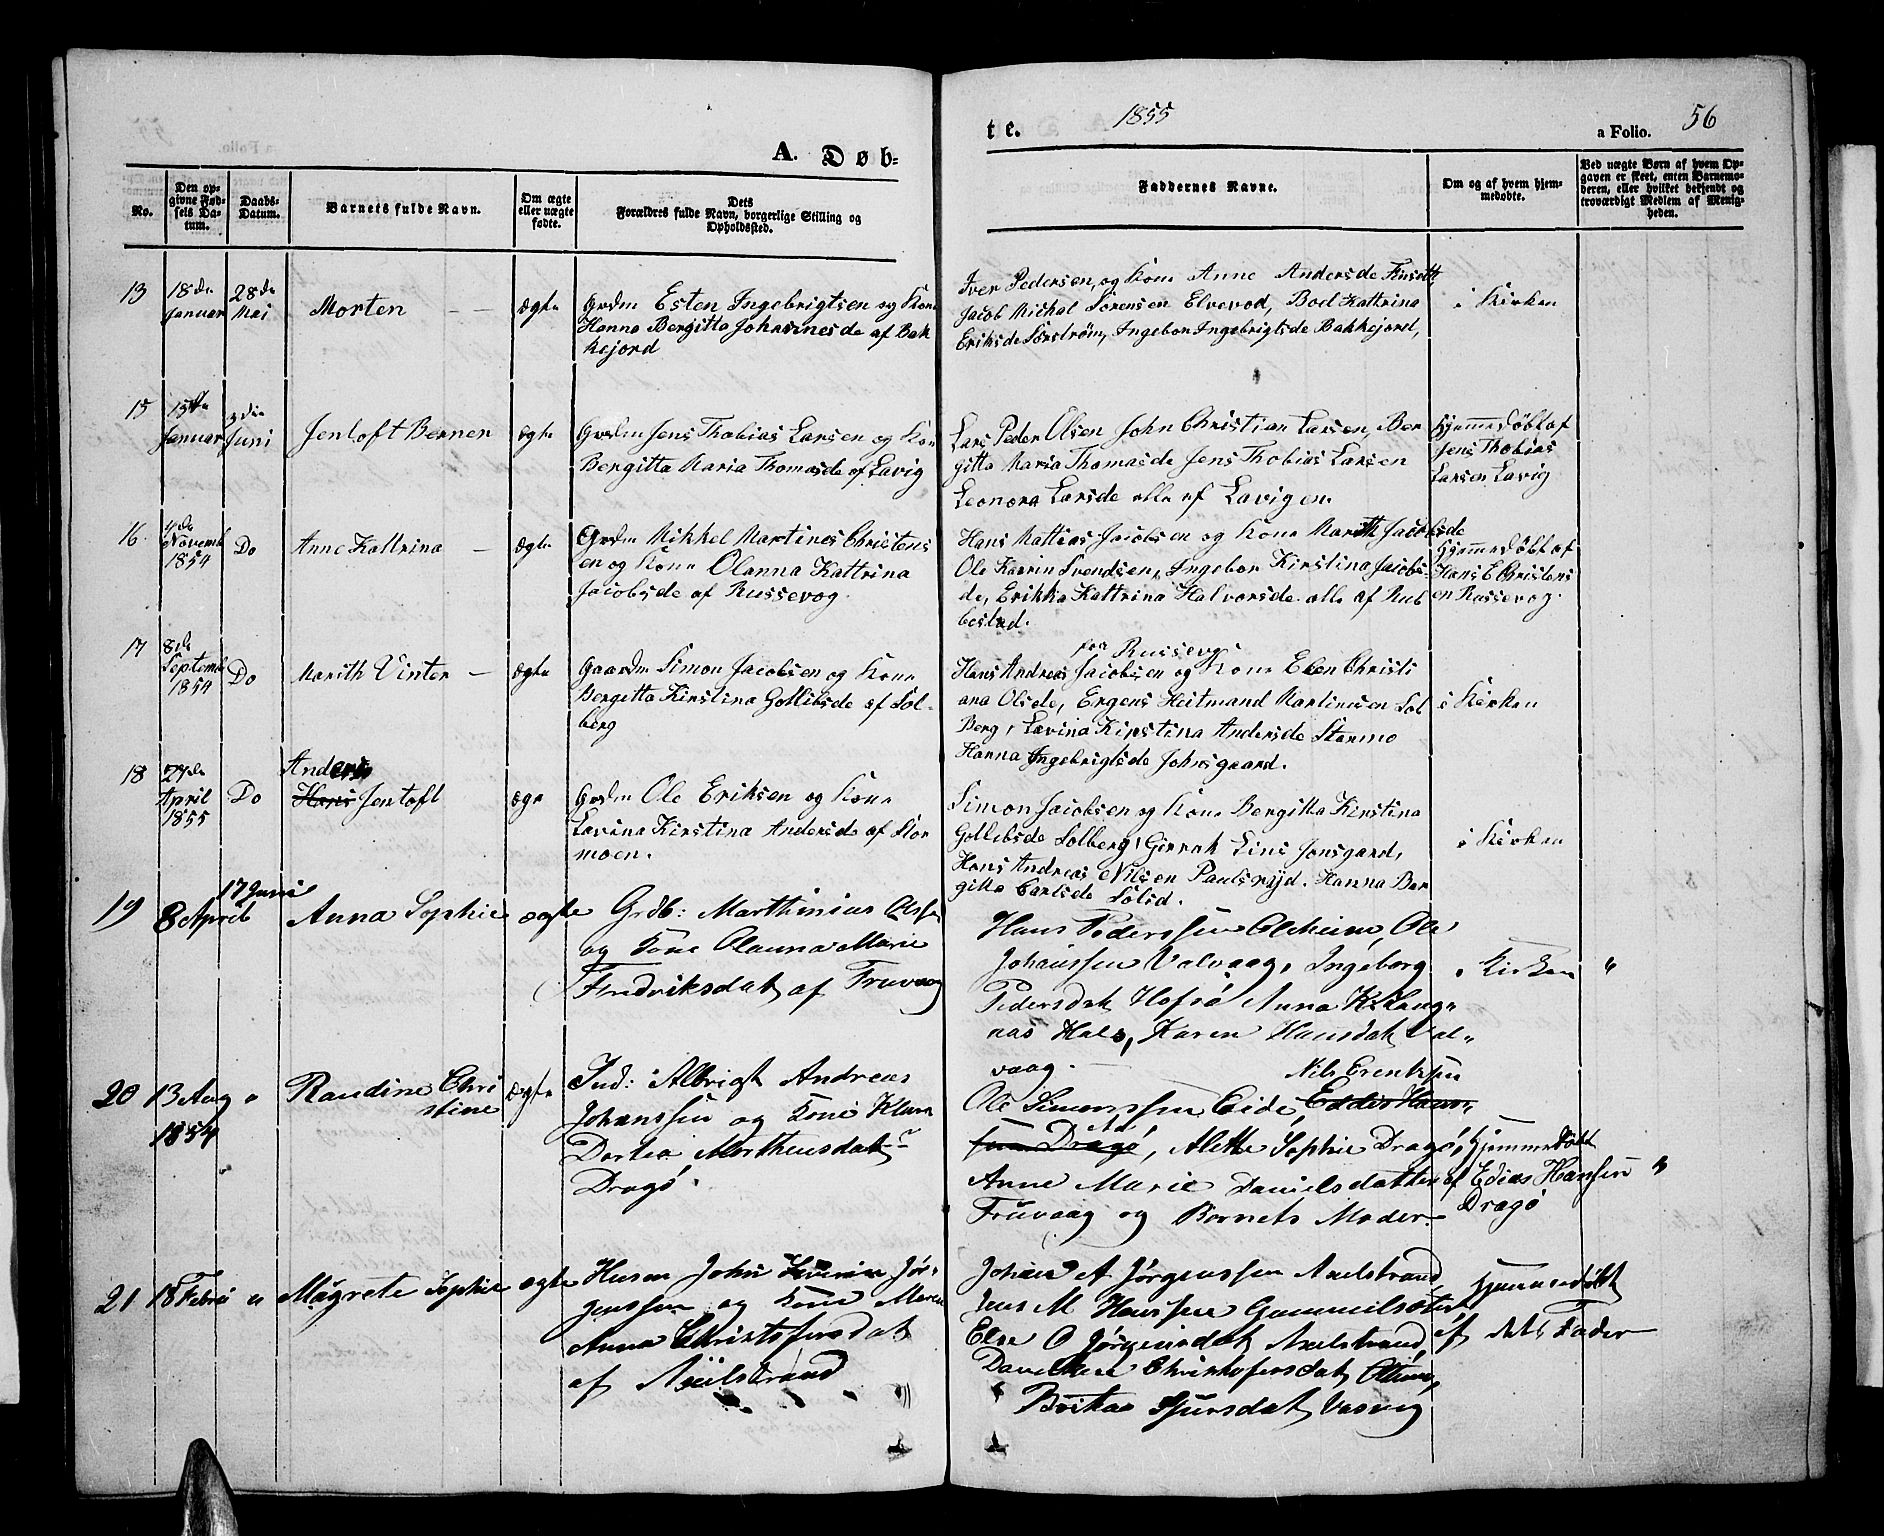 A. Døb=
te.
1855
a Folio. 56
No.
Den op-
givne Fød-
sels Da-
tum.
Daabs-
Datum.
Barnets fulde Navn.
Om ægte
eller uægte
fødte.
Dets
Forældres fulde Navn, borgerlige Stilling og
Opholdssted.
Faddernes Navne.
Om og af hvem hjem-
medøbte.
Ved uægte Børn af hvem Op-
gaven er skeet, enten Barnemo-
deren, eller hvilket bekjendt og
troværdigt Medlem af Menig-
heden.
13
18de
Januar
28de
Mai
Morten
ægte
Grdm Esten Ingebrigtsen og Kone
Hanna Bergitta Johannesde af Bak
kejord
Iver Pedersen, og Kone Anne Andersde
Jacob Michal Sørensen Elvevod, Bod Kattrina
Eriksde Sørstrøm, Ingebor Ingebrigtsde Bakkejord,
i Kirken
15
15de
Januar
3die
Juni
Jentoft Benner
ægte
Grdm Jens Thobias Larsen og Kone
Bergitta Maria Thomasde af Lavig
Lars Peder Olsen John Christian Larsen, Ber
gitta Maria Thomasde Jens Thobias Larsen
Leonora Larsde alle af Lavigen
Hjemmedøbt af
Jens Thobias
Larsen Lavig
16.
4de
Novemb
1854
Do
Anne Kattrina
ægte
Grdm Mikkel Martines Christens
en og Kone Olanna Kattrina
Jacobsde af Russevog.
Hans Mattias Jacobsen og Kone Marith Jacobsde
Ole Karrin Svendsen, Ingebor Kirstina Jacobs-
de, Erikka Kattrina Halvorsde alle af Rub
bestad.
Hjemmedøbt af
Hans E Christens
en Russevog.
17
8de
Septemb
1854
Do
Marith Vinter
ægte
Gaardm Simon Jacobsen og Kone
Bergitta Kirstina Gollibsde af Sol-
berg
fra Russevog
Hans Andreas Jacobsen og Kone Elen Christi
ana Olsde, Ergens Heitmand Martinesen Sol
Berg, Lavina Kirstina Andersde Stormo
Hanna Ingebrigtsde Johnsgaard.
i Kirken
18
27de
April
1855
Do
Anders
Hans Jentoft
ægte
Grdm Ole Eriksen og Kone
Lavina Kirstina Andersde af Stor
moen.
Simon Jacobsen og Kone Bergitta Kirstina
Gollibsde Solberg, Lins Jonsgard,
Hans Andreas Nilsen Paulsryd. Hanna Ber
gitte Carlsde Solid.
i Kirken
19
8 April
17 Juni
Anna Sophie
ægte
Grdb: Marthinius Olsen
og Kone Olanna Marie
Fredriksdat af Fruvaag
Hans Pederssen Alsheim, Ole
Johanssen Valvaag, Ingeborg
Pedersdat Hofsø Anna K. Laug-
nas Hals, Karen Hansdat Val-
vaag.
i Kirken "
20
13 Aug
1854
"
Randine Chri
stine
ægte
Ind: Albrigt Andreas
Johanssen og Kone Klara
Dortea Morthensdat
Dragø.
Nils Erentsen
Ole Simonssen Eide, Eddis Hans-
sen Dragø, Alette Sophie Dragø,
Anne Marie Danielsdatter
Fruvaag og Barnets Moder
Hjemmedøbt
af Edias Hansen
Dragø
"
21
18 Febru
"
Magrete Sophie
ægte
Husm John Jør-
genssen og Kone Maren
Anna Christofersdat
af Axelstrand
Johan A Jørgenssen Axelstrand,
Jens M Hanssen Gammelsæter,
Else O Jørgensdat Axelstrand,
Christofersdat
Berita Sjursdat Vasvig
Hjemmedøbt
af dets Fader